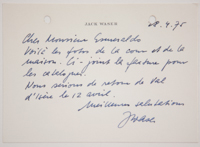 JACK WANER
28.4.75
Cher Monsieur Esmeraldo
Voilà les fotos de la cour et de la
maison. Ci-joint la facture pour
les catalogues.
Nous serons de retour de Val
d'Isère le 12 avril.
Meilleures salutations